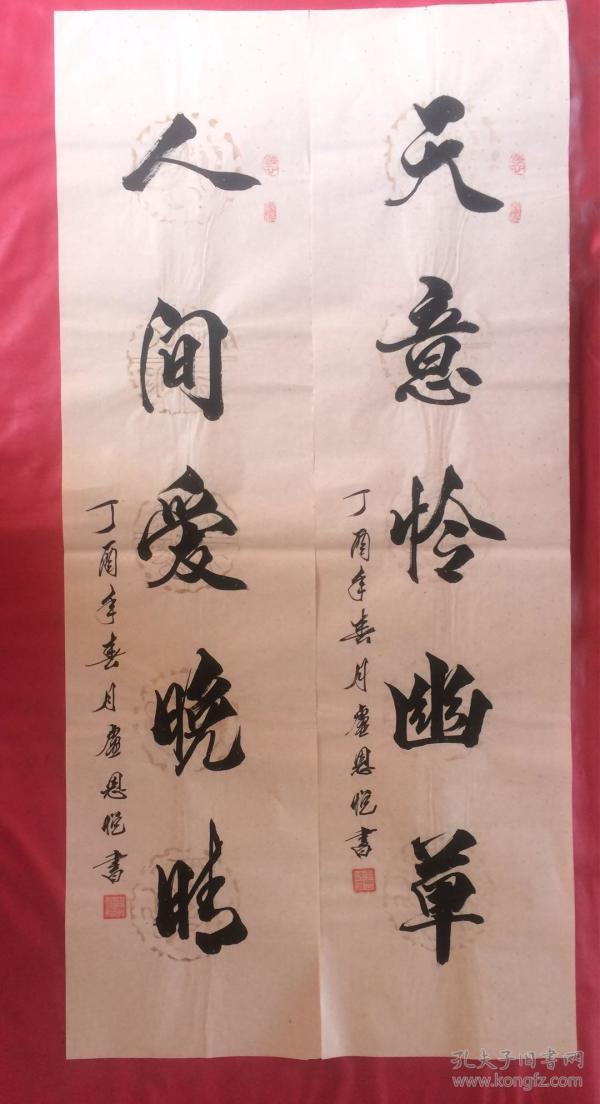 天意怜幽草
丁酉年春月卢恩悦书
人间爱晚晴
丁酉年春月卢恩悦书
孔夫子旧书网
www.kongfz.com